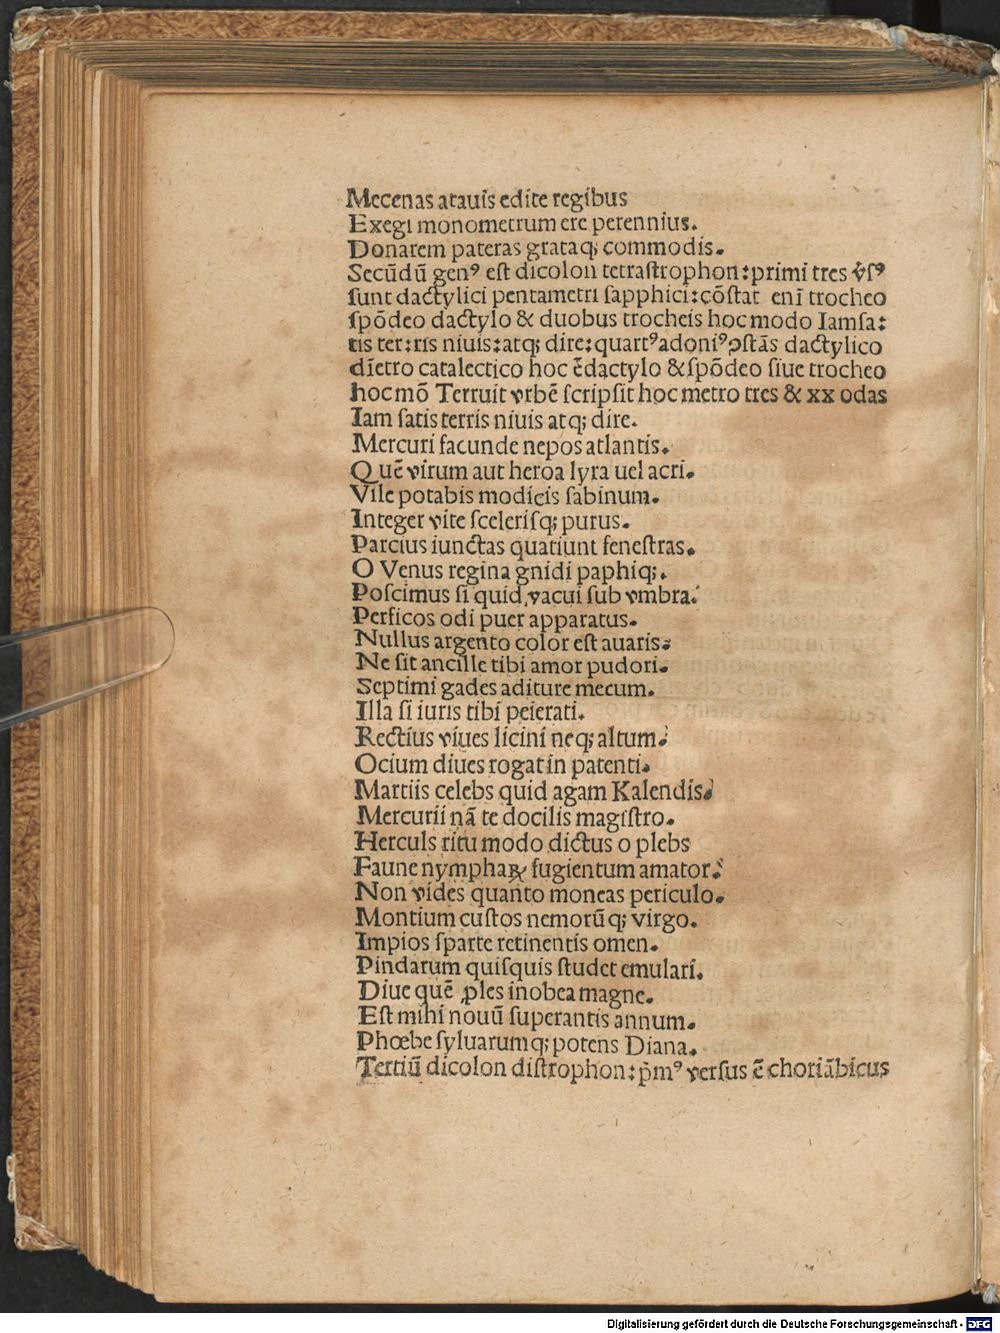 Mecenas atauis edite regibus
Exegi monometrum ere perennius.
Donarem pateras grataq; commodis.
Secūdū genꝰ est dicolon tetrastrophon:primi tres v̄sꝰ
sunt dactylici pentametri sapphici:cōstat enī trocheo
spōdeo dactylo & duobus trocheis hoc modo Iamsa:
tis ter:ris niuis:atq; dire:quartꝰadoniꝰꝯstās dactylico
dīetro catalectico hoc ēdactylo &spōdeo siue trocheo
hoc mō Terruit vrbē scripsit hoc metro tres & xx odas
Iam satis terris niuis atq; dire.
Mercuri facunde nepos atlantis.
Quē virum aut heroa lyra uel acri.
Vile potabis modicis sabinum.
Integer vite scelerisq; purus.
Parcius iunctas quatiunt fenestras.
O Venus regina gnidi paphiq;.
Poscimus si quid vacui sub vmbra.
Persicos odi puer apparatus.
Nullus argento color est auaris:
Ne sit ancille tibi amor pudori.
Septimi gades aditure mecum.
Illa si iuris tibi peierati.
Rectius viues licini neq; altum.
Ocium diues rogat in patenti.
Martiis celebs quid agam Kalendis.
Mercurii nā te docilis magistro.
Herculs ritu modo dictus o plebs
Faune nymphaꝝ fugientum amator.
Non vides quanto moneas periculo.
Montium custos nemorūq; virgo.
Impios sparte retinentis omen.
Pindarum quisquis studet emulari.
Diue quē ꝓles inobea magne.
Est mihi nouū superantis annum.
Phœbe syluarumq; potens Diana.
Tertiū dicolon distrophon:p̄mꝰ versus ē choriābicus
Digitalisierung gefördert durch die Deutsche Forschungsgemeinschaft - DFG